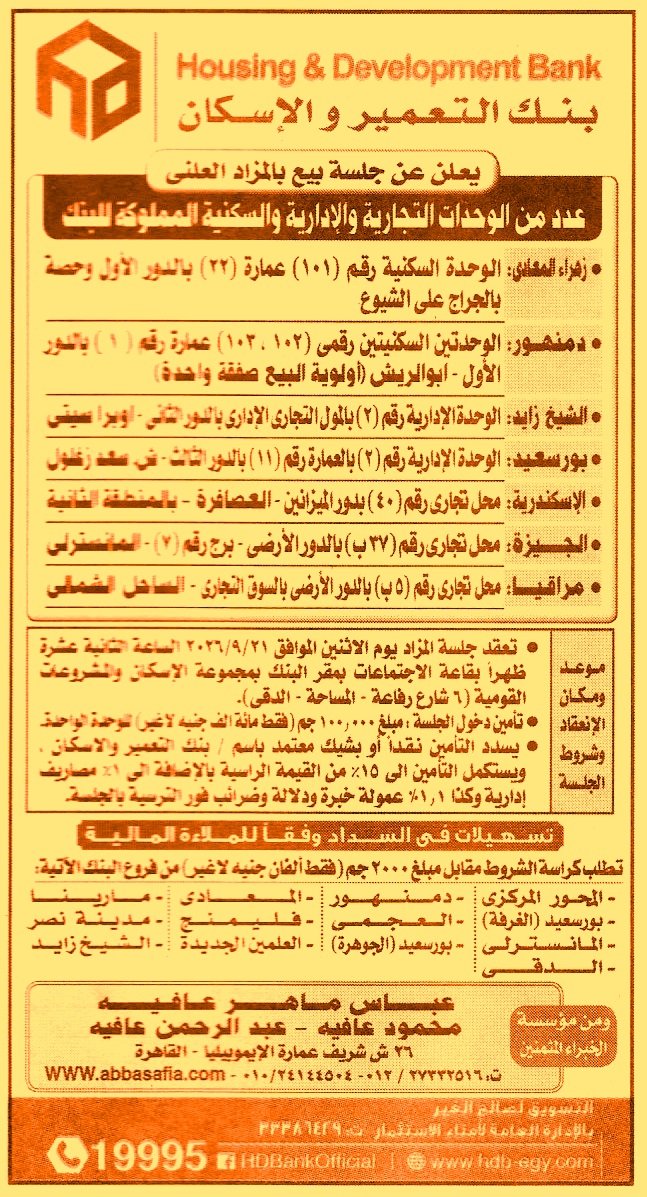 Housing & Development Bank
بنك التعمير والإسكان
يعلن عن جلسة بيع بالمزاد العلنى
عدد من الوحدات التجارية والإدارية والسكنية المملوكة للبنك
• زهراء المعادى: الوحدة السكنية رقم (١٠١) عمارة (٢٢) بالدور الأول وحصة
بالجراج على الشيوع
• دمنهور: الوحدتين السكنيتين رقمى (١٠٢ ، ١٠٣) عمارة رقم (١) بالدور
الأول - ابوالريش (أولوية البيع صفقة واحدة)
• الشيخ زايد: الوحدة الإدارية رقم (٢) بالمول التجارى الإدارى بالدور الثانى - اوبرا سيتى
• بورسعيد: الوحدة الإدارية رقم (٢) بالعمارة رقم (١١) بالدور الثالث - ش. سعد زغلول
• الإسكندرية: محل تجارى رقم (٤٠) بدور الميزانين - العصافرة - بالمنطقة الثانية
• الجيزة: محل تجارى رقم (٣٧ ب) بالدور الأرضى - برج رقم (٧) - المانسترلى
• مراقيا: محل تجارى رقم (٥ ب) بالدور الأرضى بالسوق التجارى - الساحل الشمالى
موعد
ومكان
الإنعقاد
وشروط
الجلسة
• تعقد جلسة المزاد يوم الاثنين الموافق ٢٠٢٦/٩/٢١ الساعة الثانية عشرة
ظهراً بقاعة الاجتماعات بمقر البنك بمجموعة الإسكان والمشروعات
القومية (٦ شارع رفاعة - المساحة - الدقى).
• تأمين دخول الجلسة : مبلغ ١٠٠,٠٠٠ جم (فقط مائة الف جنيه لاغير) للوحدة الواحدة.
• يسدد التأمين نقداً أو بشيك معتمد باسم / بنك التعمير والاسكان ،
ويستكمل التأمين الى ١٥٪ من القيمة الراسية بالإضافة الى ١٪ مصاريف
إدارية وكذا ١,١٪ عمولة خبرة ودلالة وضرائب فور الترسية بالجلسة.
تسهيلات فى السداد وفقاً للملاءة المالية
تطلب كراسة الشروط مقابل مبلغ ٢٠٠٠ جم (فقط ألفان جنيه لاغير) من فروع البنك الآتية:
- المحور المركزى - دمنهور - المعادى - مارينا
- بورسعيد (الغرفة) - العجمى - فليمنج - مدينة نصر
- المانسترلى - بورسعيد (الجوهرة) - العلمين الجديدة - الشيخ زايد
- الدقى
ومن مؤسسة
الخبراء المثمنين
عباس ماهر عافيه
محمود عافيه - عبد الرحمن عافيه
٢٦ ش شريف عمارة الإيموبيليا - القاهرة
ت: ٢٧٣٣٢٥١٦ / ٠١٢ - ٠١٠/٢٤١٤٤٥٠٤ - WWW.abbasafia.com
التسويق لصالح الغير
بالإدارة العامة لأمناء الاستثمار ت: ٣٣٣٨٦٤٢٩
19995 HDBankOfficial | www.hdb-egy.com